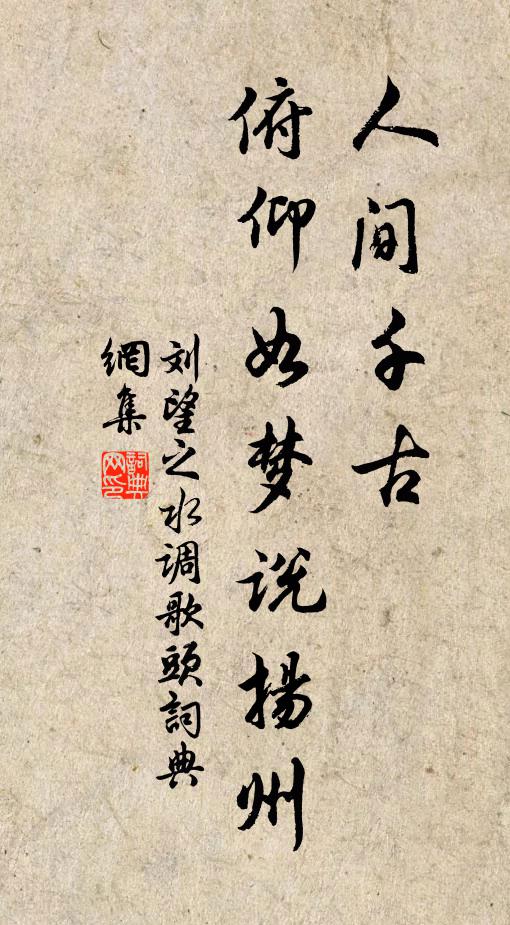 人间千古
俯仰如梦说揚州
刘望之水调歌頭詞典
網集
詞典网印